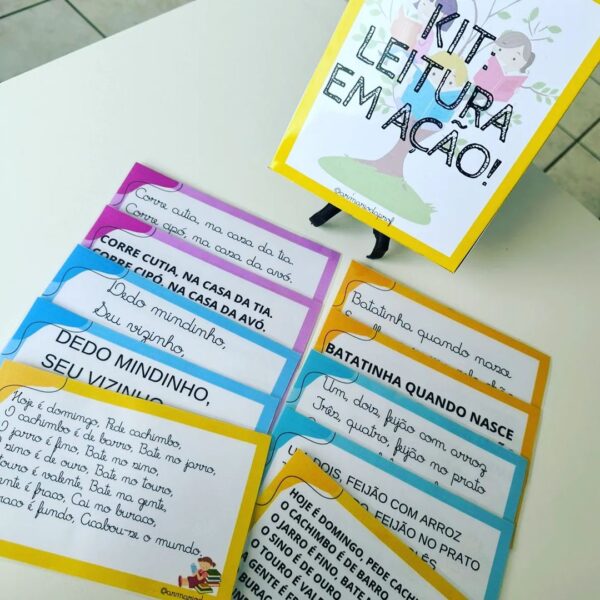 KIT:
LEITURA
EM AÇÃO!
@armariodaprof
Corre cutia, na casa da tia.
Corre cipó, na casa da avó.
CORRE CUTIA, NA CASA DA TIA.
CORRE CIPÓ, NA CASA DA AVÓ.
Dedo mindinho,
Seu vizinho,
DEDO MINDINHO,
SEU VIZINHO
Hoje é domingo, Pede cachimbo,
O cachimbo é de barro, Bate no jarro,
O jarro é fino, Bate no sino,
O sino é de ouro, Bate no touro,
touro é valente, Bate na gente,
gente é fraco, Cai no buraco,
buraco é fundo, Acabou-se o mundo.
Batatinha quando nasce
BATATINHA QUANDO NASCE
Um, dois, feijão com arroz
Três, quatro, feijão no prato
DOIS, FEIJÃO COM ARROZ
FEIJÃO NO PRATO
HOJE É DOMINGO, PEDE CACHIM
O CACHIMBO É DE BARRO,
O JARRO É FINO, BATE
O SINO É DE OURO,
O TOURO É VAL
A GENTE É F
BURAC